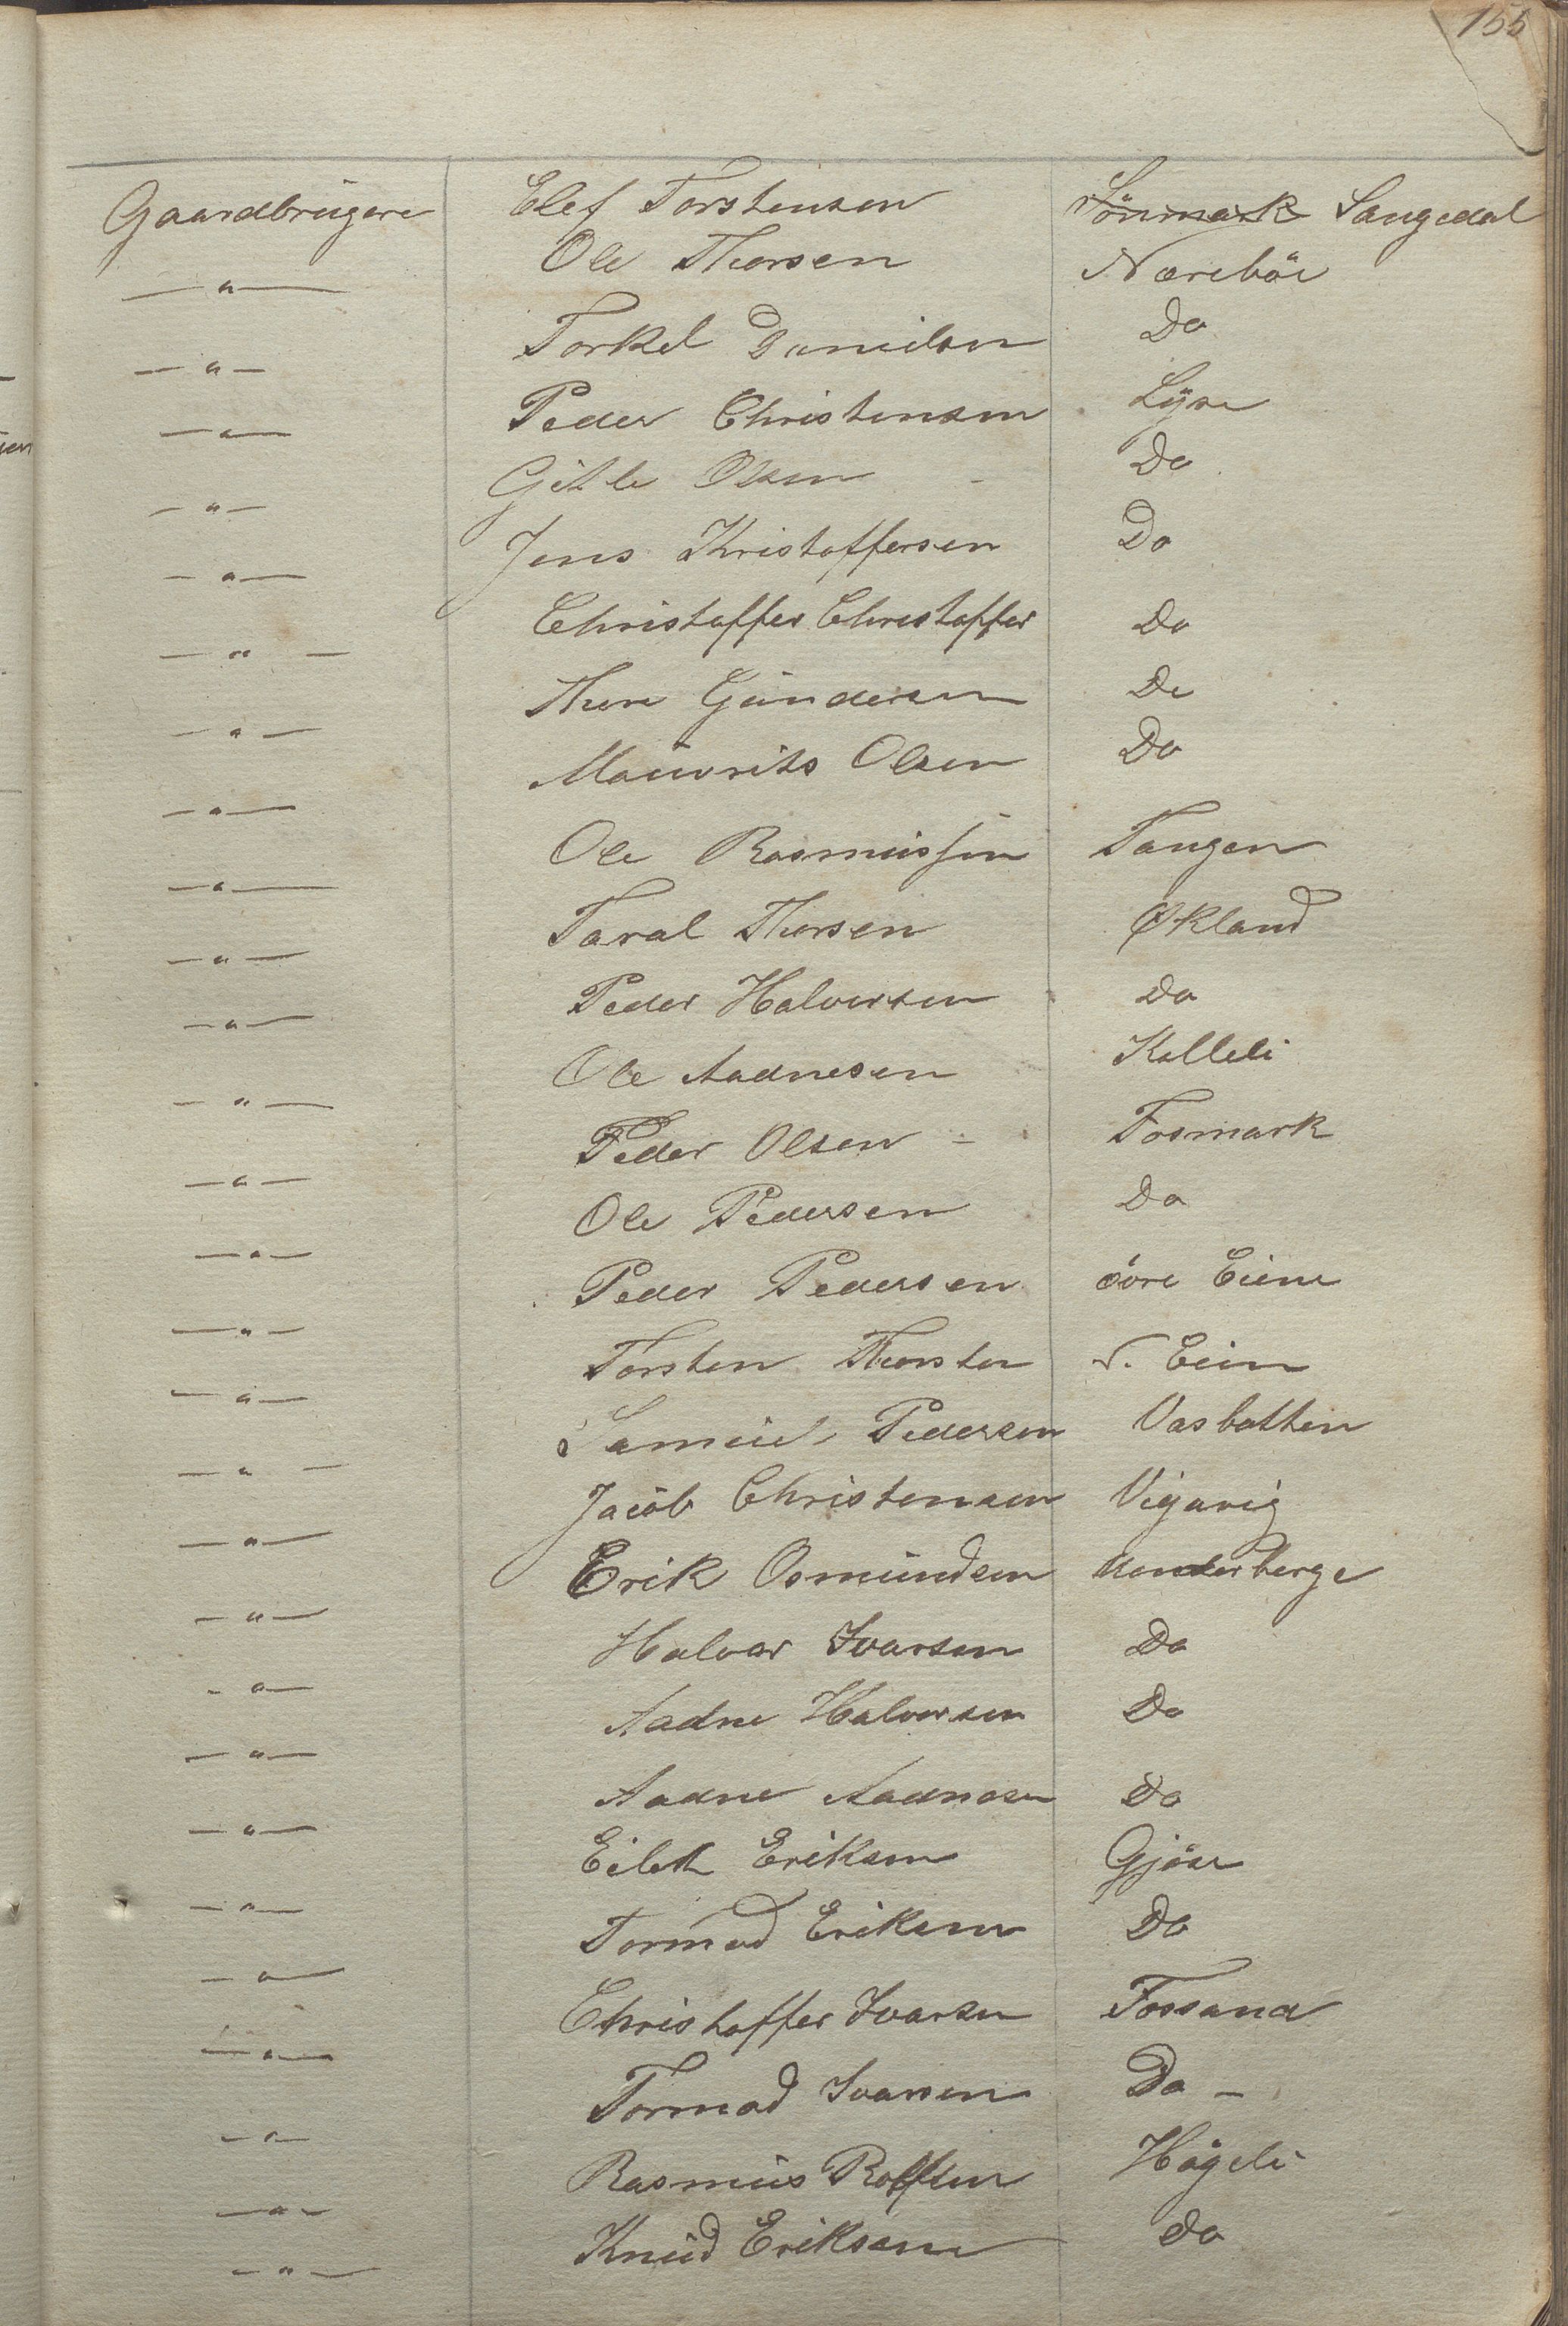 155
Gaardbrugere Elef Torstensen Lönmark Langedal
— " — Ole Thorsen Næreböe
— " — Torkel Danielsen Do
— " — Peder Christensen Lyse
— " — Gitle Olsen Do
— " — Jens Kristoffersen Do
— " — Christoffer Christoffer Do
— " — Thore Gundersen Do
— " — Mauvrits Olsen Do
— " — Ole Rasmussen Tangen
— " — Taral Thorsen Økland
— " — Peder Halvorsen Do
— " — Ole Aadnesen Kalleli
— " — Peder Olsen Fosmark
— " — Ole Pedersen Do
— " — Peder Pedersen övre Eiene
— " — Torsten Thorsten N. Eien
— " — Samuel Pedersen Vasbotten
— " — Jacob Christensen Vigavig
— " — Erik Osmundsen Underberge
— " — Halvor Ivarsen Do
— " — Aadne Halvorsen Do
— " — Aadne Aadnesen Do
— " — Eilert Eriksen Gjöse
— " — Tormod Eriksen Do
— " — Christoffer Ivarsen Fossand
— " — Tormod Ivarsen Do —
— " — Rasmus Rolfsen Högeli
— " — Knud Eriksen Do